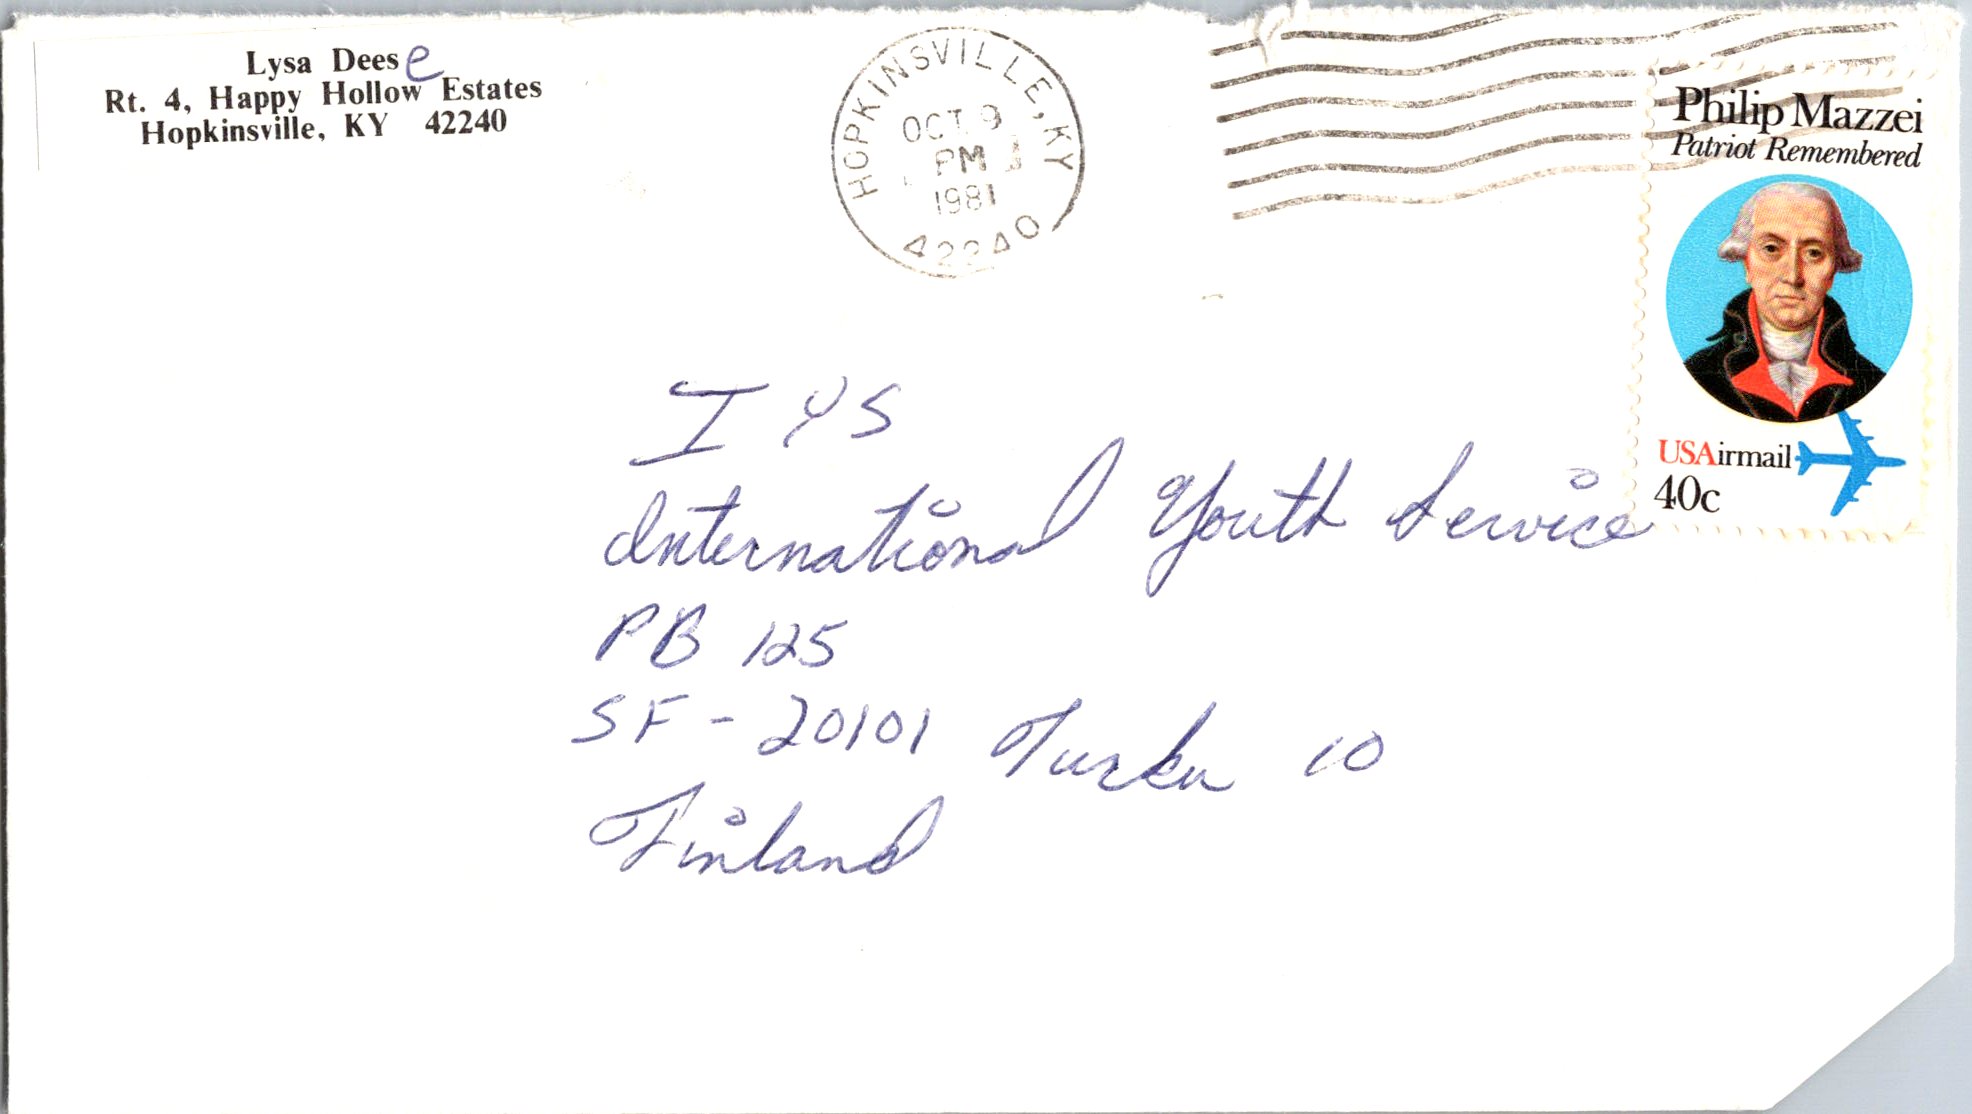 Lysa Deese
Rt. 4, Happy Hollow Estates
Hopkinsville, KY 42240
HOPKINSVILLE, KY
OCT 9
PM
1981
42240
Philip Mazzei
Patriot Remembered
USAirmail
40c
IYS
International Youth Service
PB 125
SF-20101 Turku 10
Finland